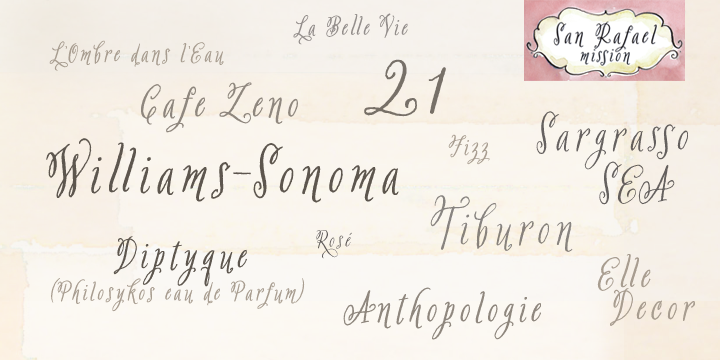 La Belle Vie
San Rafael
mission
L'Ombre dans l'Eau
Cafe Zeno
21
Sargrasso
SEA
Fizz
Williams-Sonoma
Tiburon
Rosé
Diptyque
(Philosykos eau de Parfum)
Elle
Decor
Anthopologie